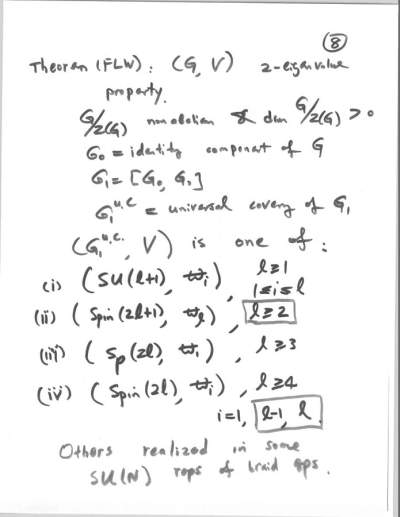 ⑧
Theorem (FLW): (G, V) 2-eigenvalue
property.
G/Z(G) nonabelian & dim G/Z(G) > 0
G₀ = identity component of G
G₁ = [G₀, G₀]
G₁ᵘ·ᶜ = universal covery of G₁
(G₁ᵘ·ᶜ·, V) is one of :
(i) (SU(l+1), ϖᵢ), l≥1
1≤i≤l
(ii) (Spin(2l+1), ϖₗ), l≥2
(iii) (Sp(2l), ϖ₁), l≥3
(iv) (Spin(2l), ϖᵢ), l≥4
i=1, l-1, l
Others realized in some
SU(N) reps of braid gps.